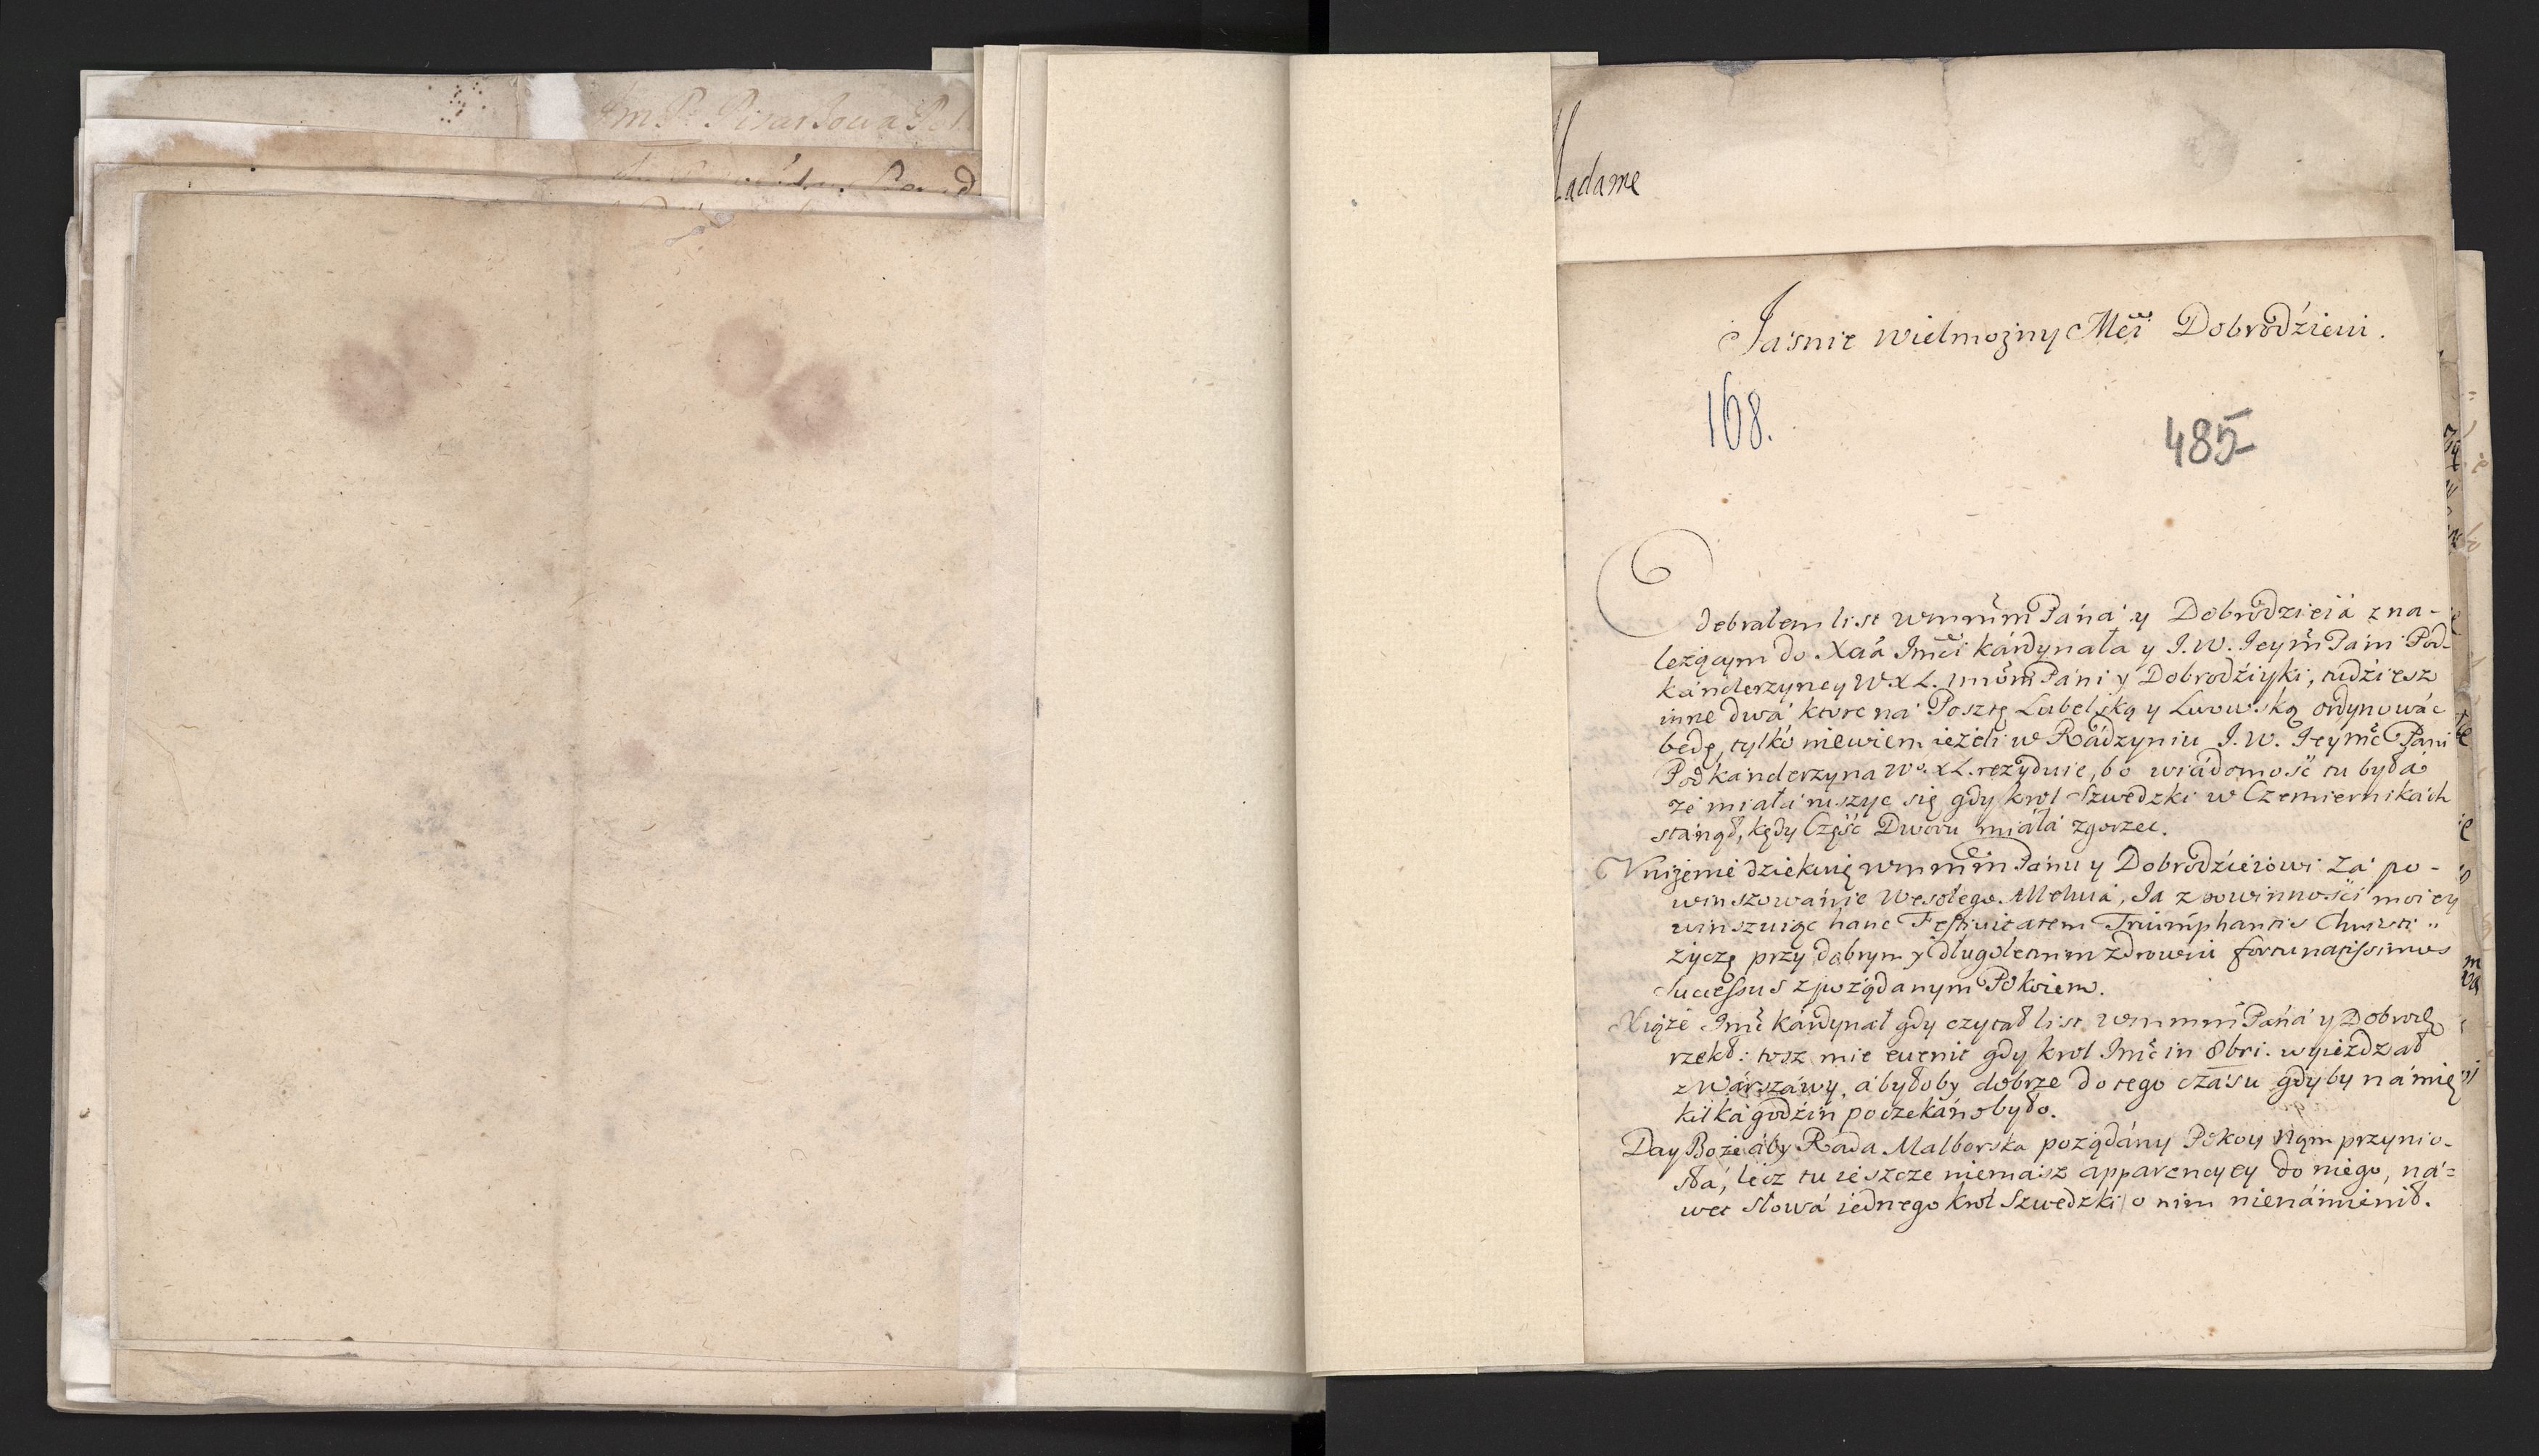 Im P. Pisarzowa Pol
Madame
Jasnie Wielmożny Mći Dobrodzieiu.
168.
485
Odebrałem list Wmmm Páná y Dobrodzieiá z na-
leżącym do Xcia Jmći kárdynała y J.W. Jeym Páni Pod-
kánclerzyney W.X.L. mmm Páni y Dobrodźiyki, tudźiesz
inne dwá ktore ná Posztę Lubelską y Lwowską ordynowác
będę, tylko niewiem ieżeli w Rádzyniu J.W. Jeymć Páni
Podkánclerzyna W.X.L. rezyduie, bo wiádomość tu była
że miáłá ruszyc się gdy krol Szwedzki w Czemiernikách
stánął, kędy Część Dworu miáłá zgorzec.
Vniżenie dziekuię Wmmm Pánu y Dobrodzieiowi Zá po-
winszowánie Wesołego Alleluiá, Ja z powinnośći moiey
winszuiąc hanc Festivitatem Triumphantis Christi
życzę przy dobrym y długoletnim zdrowiu fortunatissimos
Successus z pożądanym Pokoiem.
Xiążę Jmć kárdynał gdy czytał list Wmmm Páná y Dobrodz
rzekł: tosz mie euenit gdy krol Jmć in 8bri. wyieżdzał
z Wárszáwy, á byłoby dobrze do tego czásu gdyby ná mię
kilká godźin poczekáno było.
Day Boże áby Rada Malborska pożądány Pokoy nąm przynio-
słá, lecz tu ieszcze niemasz apparencyey do niego, ná=
wet słowá iednego krol Szwedzki o nim nienámienił.